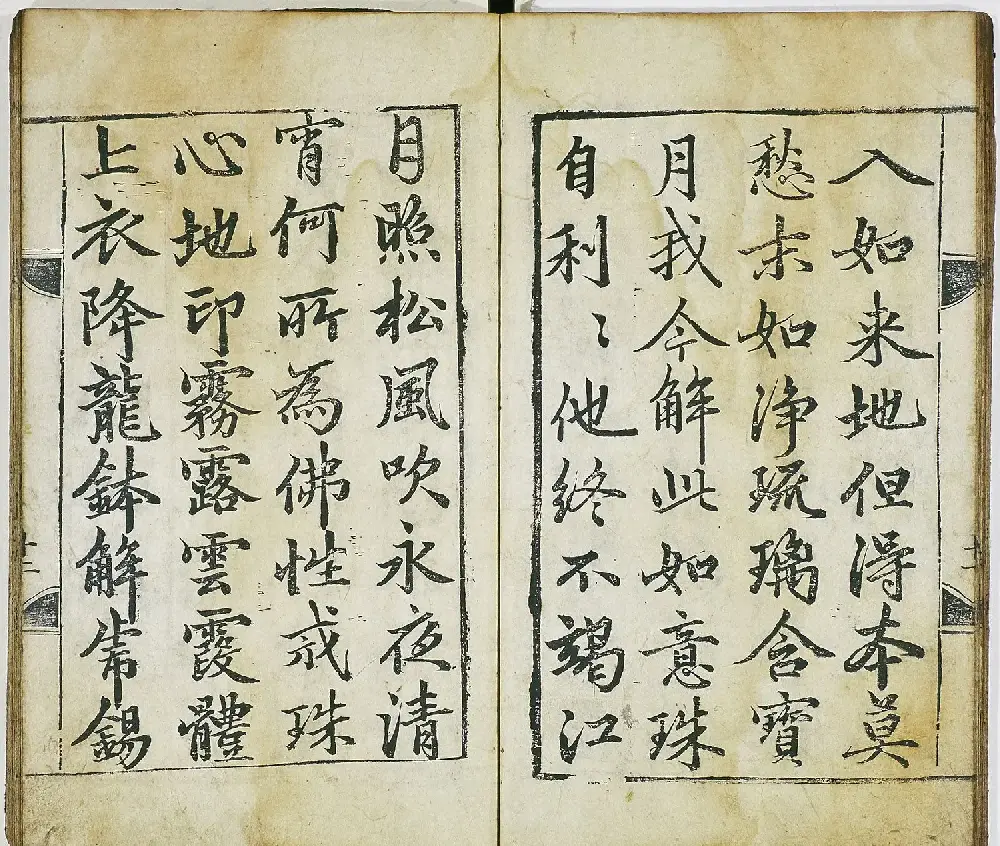 入如来地但得本莫
愁末如淨琉璃含寶
月我今解此如意珠
自利〻他終不竭江
月照松風吹永夜清
宵何所為佛性戒珠
心地印霧露雲霞體
上衣降龍鉢解虎錫